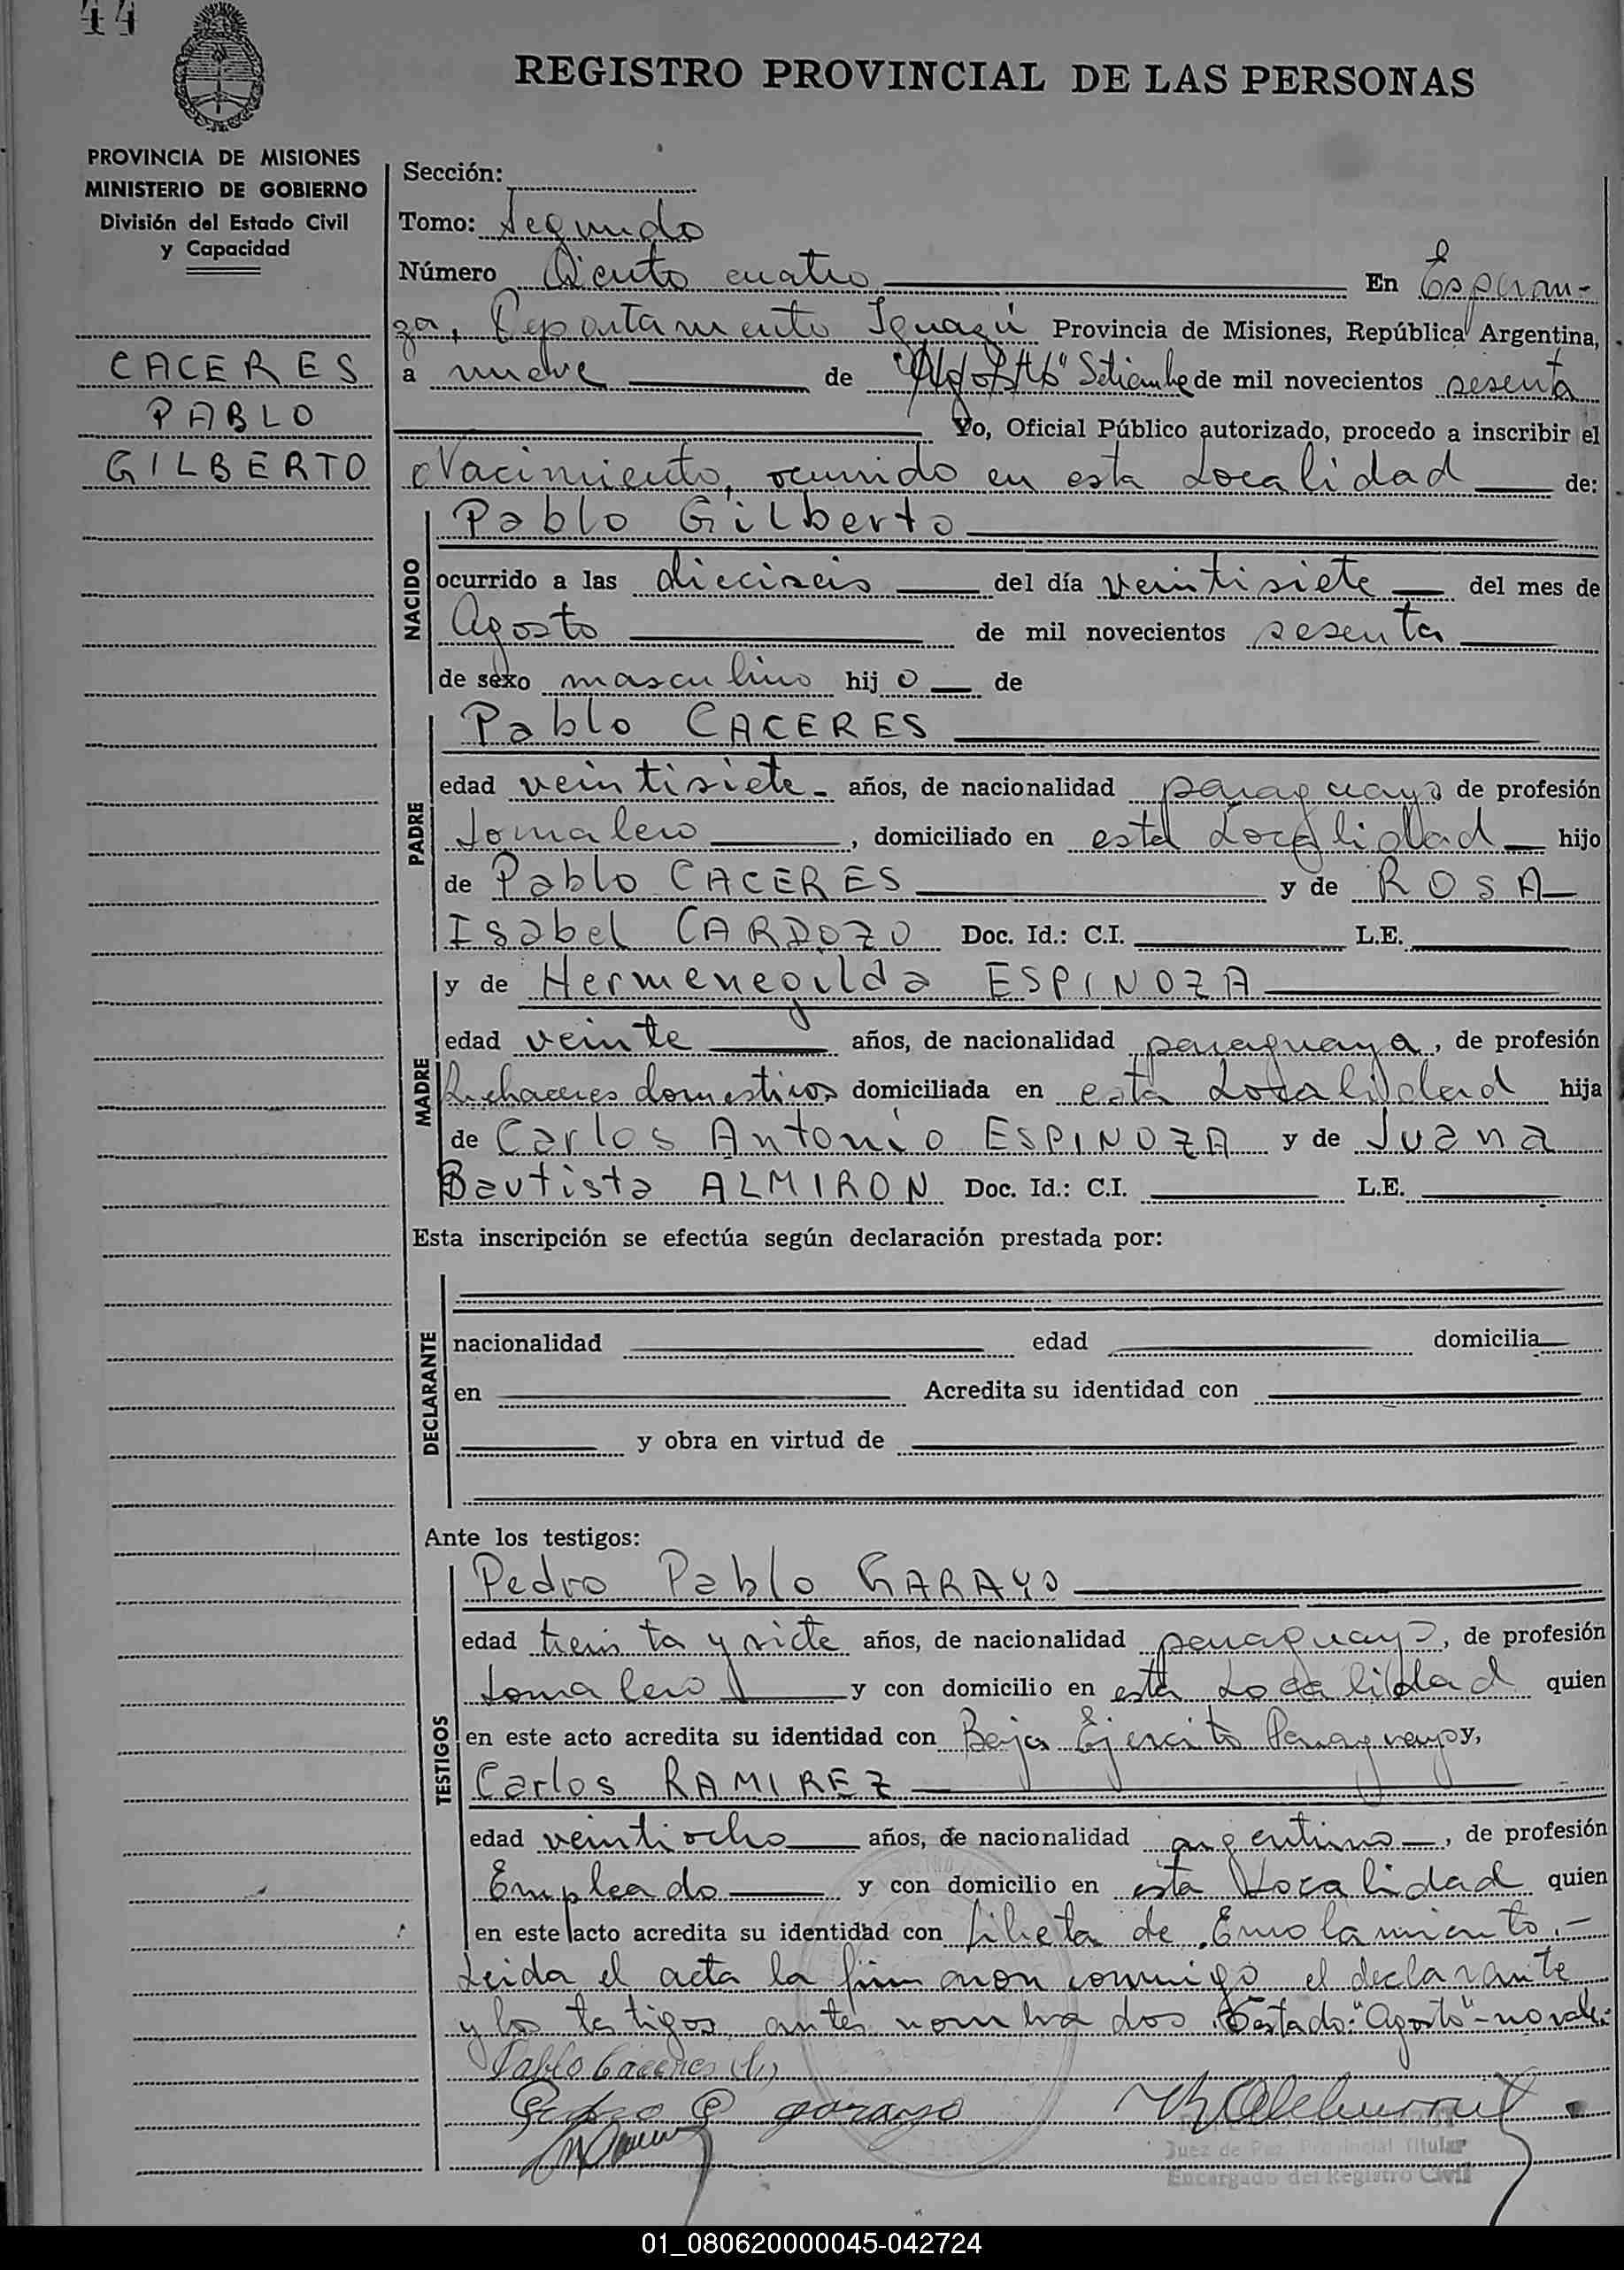 44
REGISTRO PROVINCIAL DE LAS PERSONAS
PROVINCIA DE MISIONES
MINISTERIO DE GOBIERNO
División del Estado Civil
y Capacidad
CACERES
PABLO
GILBERTO
Sección:
Tomo: Segundo
Número Ciento cuatro En Esperan-
za, Departamento Iguazú Provincia de Misiones, República Argentina,
a nueve de "Agosto" Setiembre de mil novecientos sesenta
Yo, Oficial Público autorizado, procedo a inscribir el
Nacimiento, ocurrido en esta Localidad de:
NACIDO
Pablo Gilberto
ocurrido a las dieciseis del día veintisiete del mes de
Agosto de mil novecientos sesenta
de sexo masculino hijo de
PADRE
Pablo CACERES
edad veintisiete años, de nacionalidad paraguayo de profesión
Jornalero, domiciliado en esta Localidad hijo
de Pablo CACERES y de ROSA
Isabel CARDOZO Doc. Id.: C.I. L.E.
MADRE
y de Hermenegilda ESPINOZA
edad veinte años, de nacionalidad paraguaya, de profesión
Quehaceres domesticos domiciliada en esta Localidad hija
de Carlos Antonio ESPINOZA y de Juana
Bautista ALMIRON Doc. Id.: C.I. L.E.
Esta inscripción se efectúa según declaración prestada por:
DECLARANTE
nacionalidad edad domicilia
en Acredita su identidad con
y obra en virtud de
Ante los testigos:
TESTIGOS
Pedro Pablo GARAYO
edad treinta y siete años, de nacionalidad paraguayo, de profesión
Jornalero y con domicilio en esta Localidad quien
en este acto acredita su identidad con Baja Ejercito Paraguayo y,
Carlos RAMIREZ
edad veintiocho años, de nacionalidad argentino, de profesión
Empleado y con domicilio en esta Localidad quien
en este acto acredita su identidad con Libreta de Enrolamiento.-
Leida el acta la firmaron conmigo el declarante
y los testigos antes nombrados. Testado: "Agosto" - no vale.
Pablo Caceres (h)
Pedro P garayo
Juez de Paz Provincial Titular
Encargado del Registro Civil
01_080620000045-042724